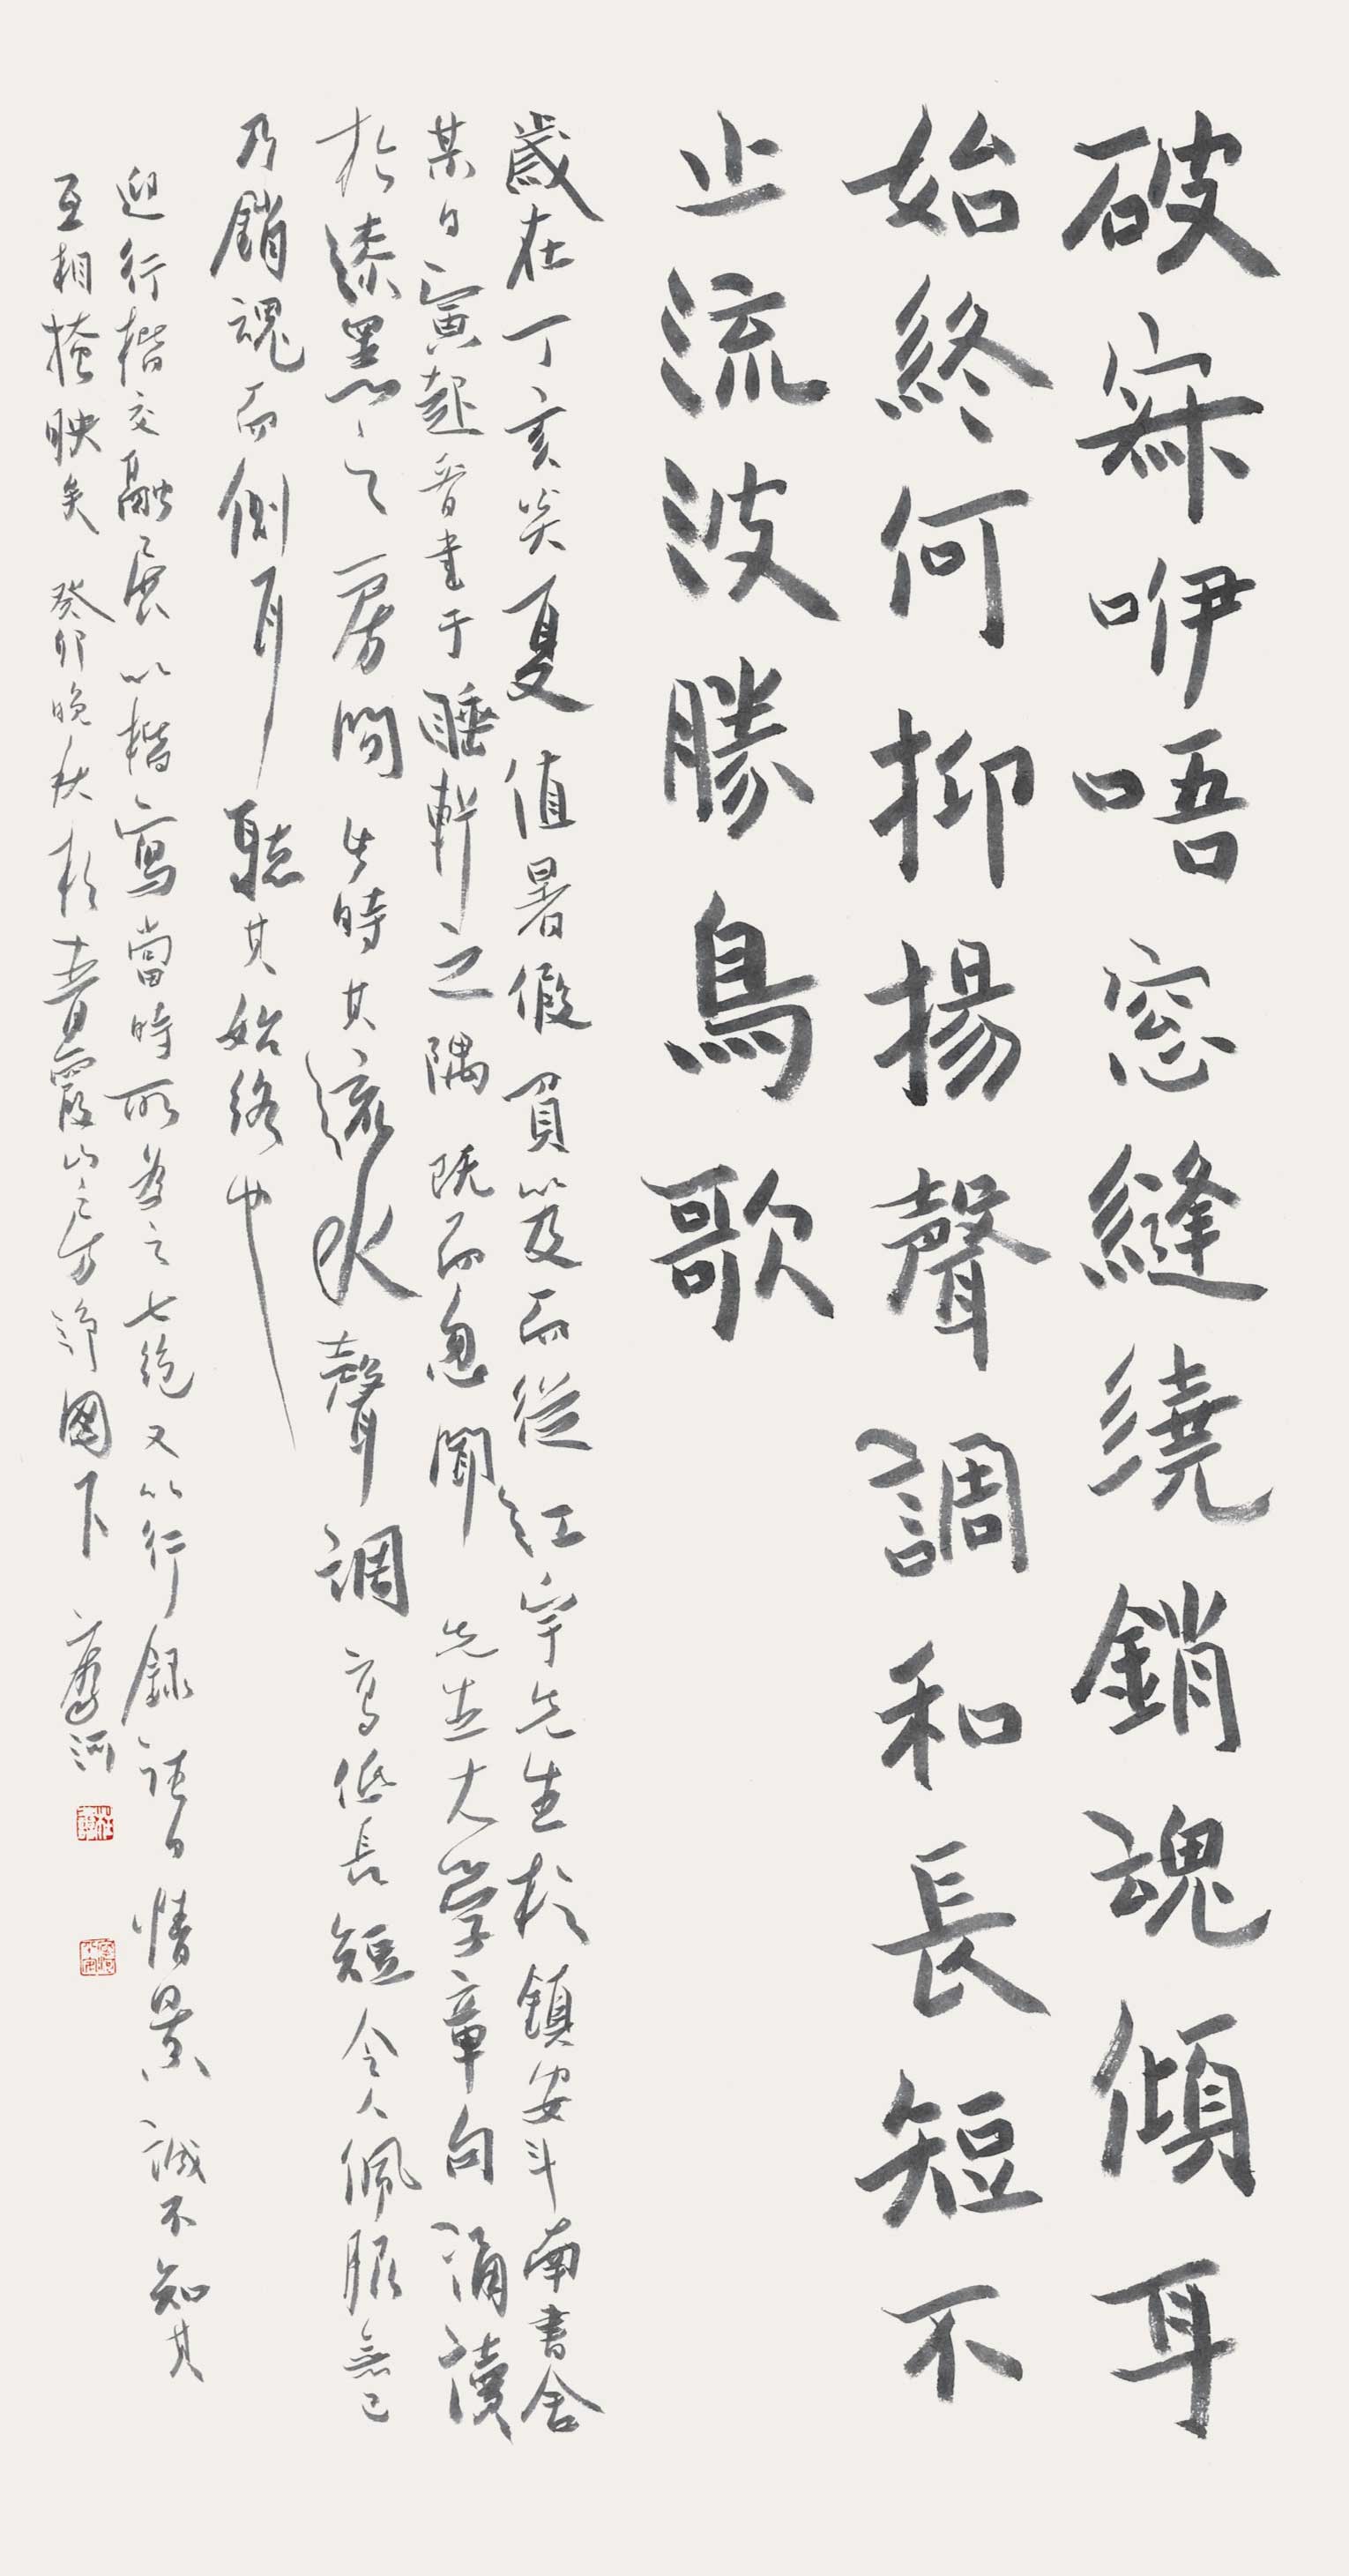 破寂咿唔窓縫繞銷魂傾耳
始終何抑揚聲調和長短不
止流波勝鳥歌
歲在丁亥炎夏值暑假負笈而從江宇先生於鎮安斗南書舍
某日寅起看書于睡軒之隅既而忽聞先生大學章句涌讀
於漆黑之房間生時其流水聲調高低長短令人佩服無已
乃銷魂而側耳聽其始終也
迎行楷交融展以楷寫當時所為之七絕又以行錄該日情景誠不知其
互相掩映矣癸卯晚秋於青霞山房